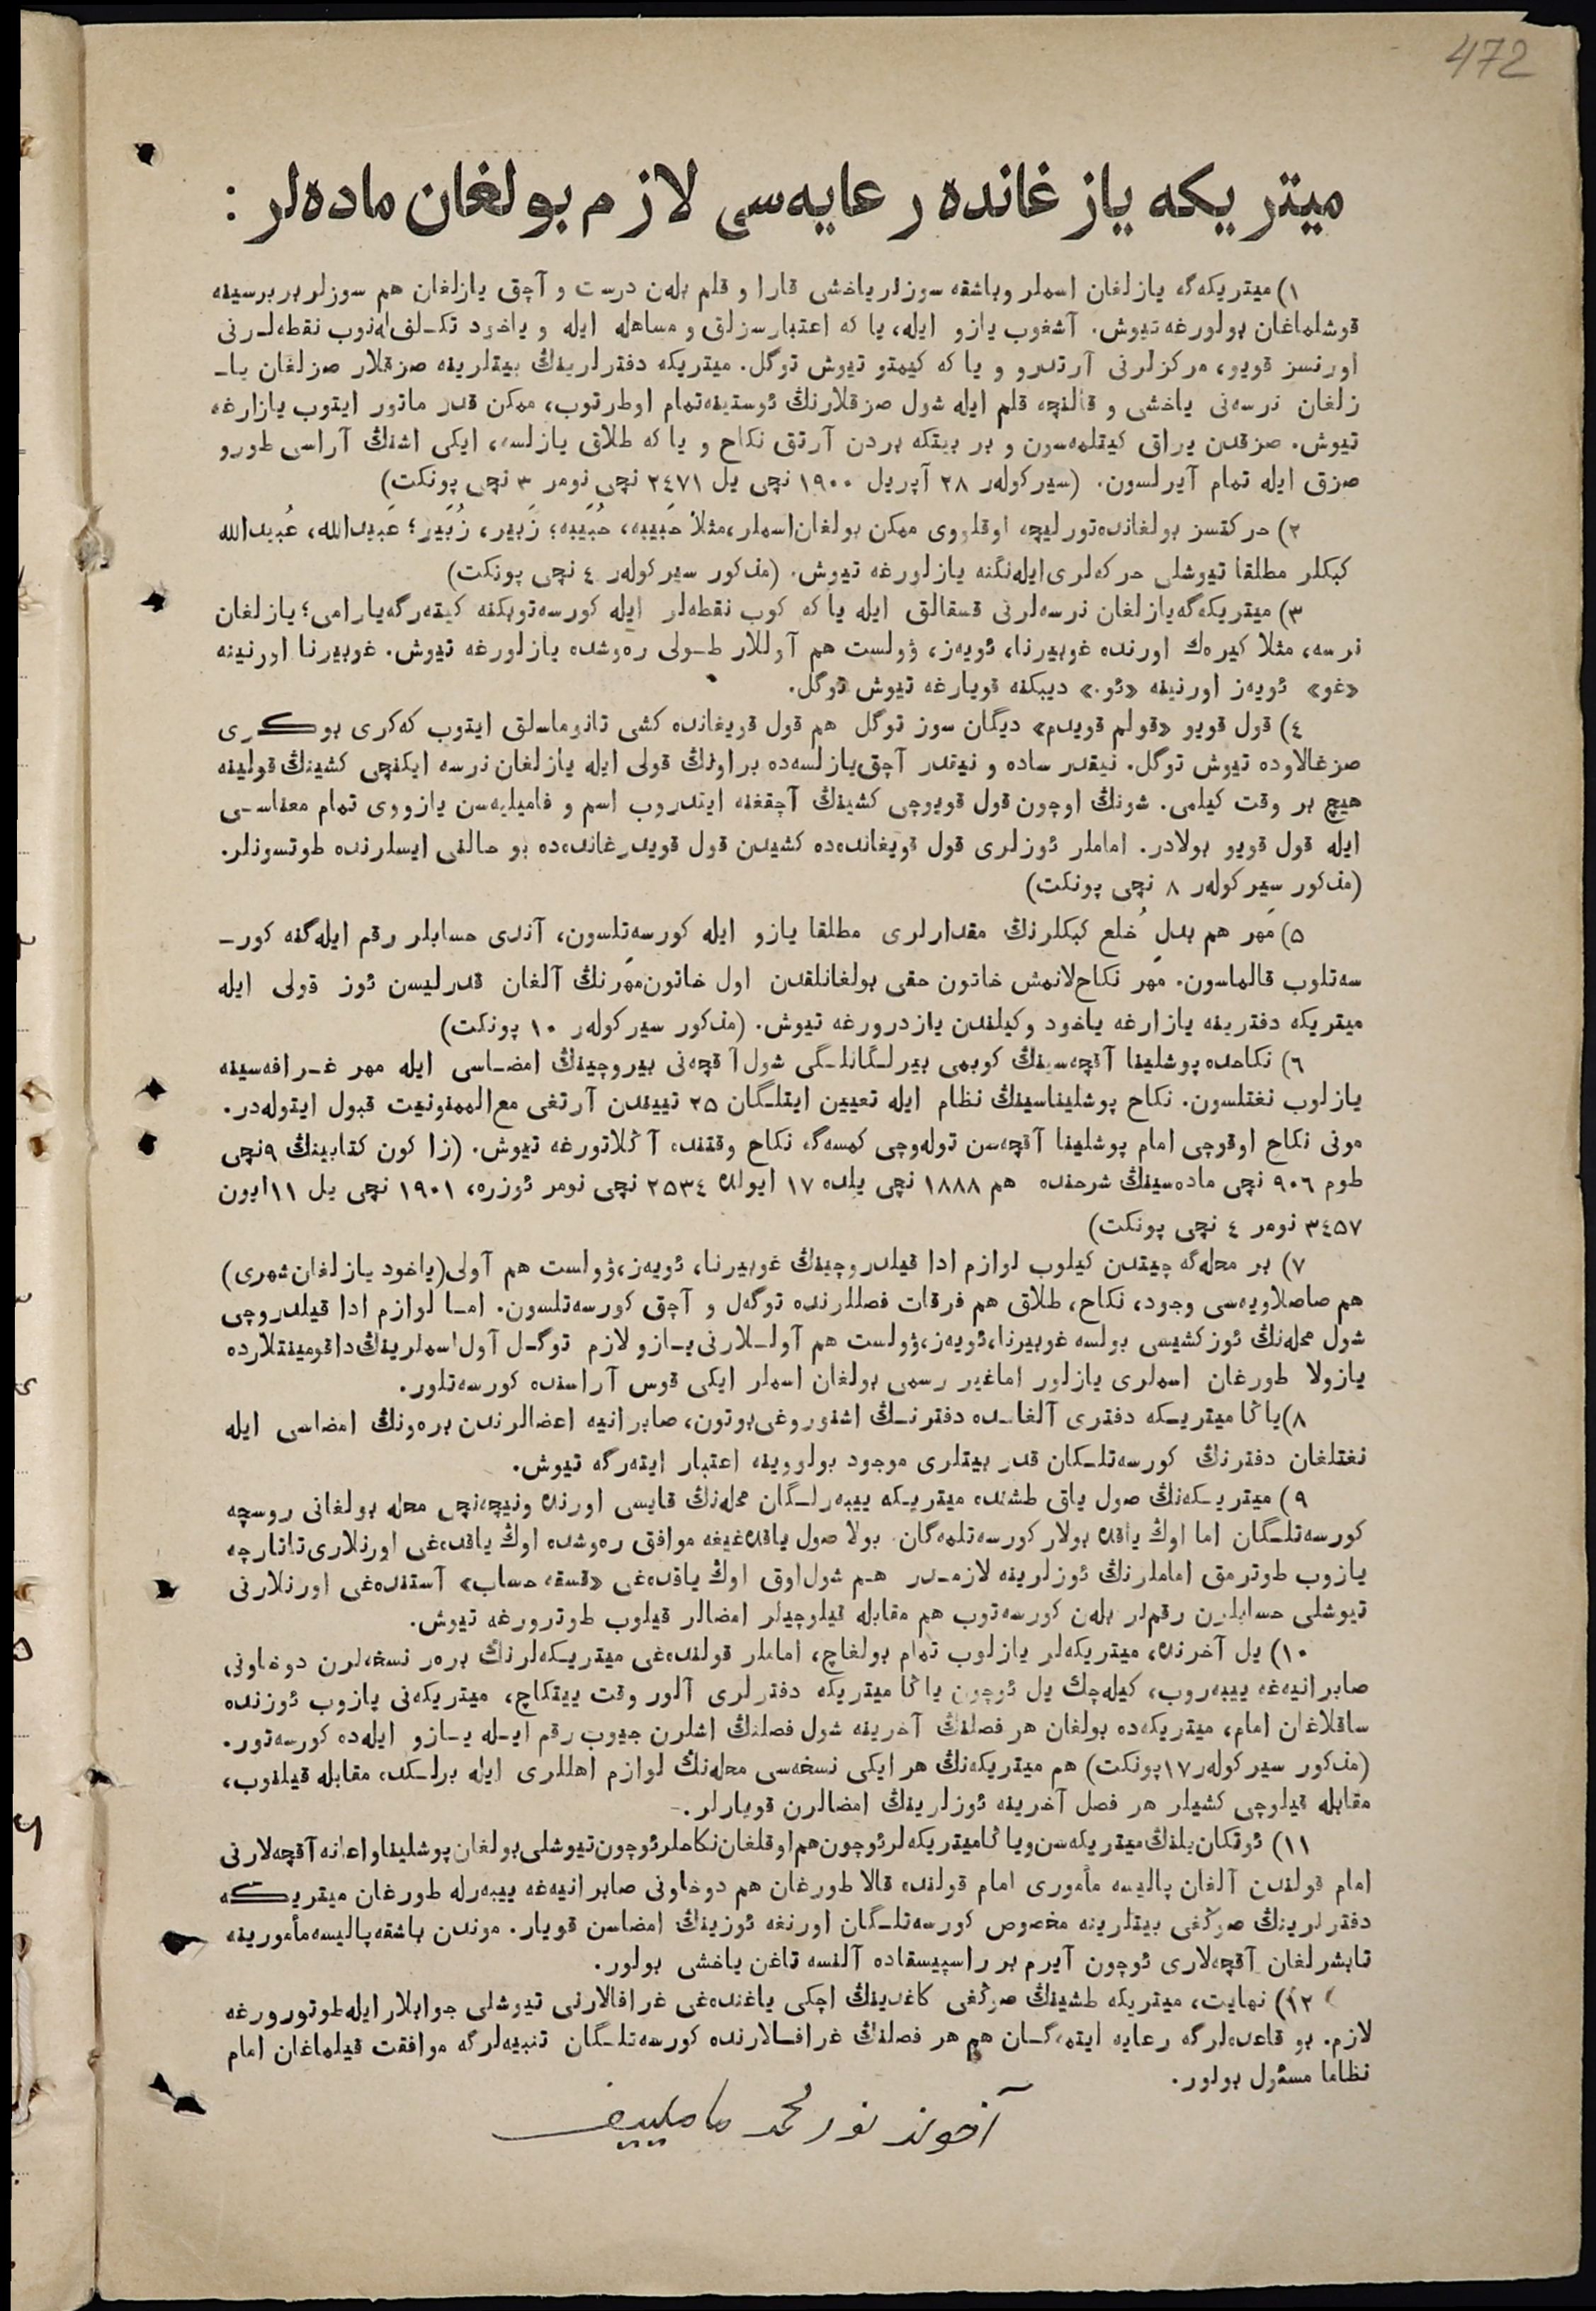 472
میتریکه یازغانده رعایه‌سی لازم بولغان ماده‌لر :
۱) میتریکه‌گه یازلغان اسملر وباشقه سوزلر یاخشی قارا و قلم بله‌ن درست و آچق یازلغان هم سوزلر بربرسینه
قوشلماغان بولورغه تیوش. آشغوب یازو ایله، یا که اعتبارسزلق و مساهله ایله و یاخود تکـلف له‌نوب نقطه‌لـرنی
اورنسز قویو، مرکزلرنی آرتدرو و یا که کیمتو تیوش توگل. میتریکه دفترلرینڭ بیتلرینه صزقلار صزلغان یاـ
زلغان نرسه‌نی یاخشی و قالنچه قلم ایله شول صزقلارنڭ ئوستینه‌تمام اوطرتوب، ممکن قدر ماتور ایتوب یازارغه
تیوش. صزقدن یراق کیتلمه‌سون و بر بیتکه بردن آرتق نکاح و یا که طلاق یازلسه، ایکی اشنڭ آراسی طورو
صزق ایله تمام آیرلسون. (سیرکوله‌ر ۲۸ آپریل ۱۹۰۰ نچی یل ۲٤۷۱ نچی نومر ۳ نچی پونکت)
۲) حرکتسز بولغانده‌تورلیچه اوقلووی ممکن بولغان‌اسملر،مثلا حَبیبه، حُبَیبه؛ زَبیر، زُبَیر؛ عَبیدالله، عُبیدالله
کبکلر مطلقا تیوشلی حرکه‌لری‌ایله‌نگنه یازلورغه تیوش. (مذکور سیرکوله‌ر ٤ نچی پونکت)
۳) میتریکه‌گه‌یازلغان نرسه‌لرنی قسقالق ایله یا که کوب نقطه‌لر ایله کورسه‌توبکنه کیته‌رگه‌یارامی؛ یازلغان
نرسه، مثلا کیره‌ك اورنده غوبیرنا، ئویه‌ز، ۋولست هم آوللار طـولی ره‌وشده یازلورغه تیوش. غوبیرنا اورنینه
«غو» ئویه‌ز اورنینه «ئو.» دیبکنه قویارغه تیوش توگل.
٤) قول قویو «قولم قویدم» دیگان سوز توگل هم قول قویغانده کشی تانوماسلق ایتوب که‌کری بوکری
صزغالاوده تیوش توگل. نیقدر ساده و نیندر آچق‌یازلسه‌ده براونڭ قولی ایله یازلغان نرسه ایکنچی کشینڭ قولینه
هیچ بر وقت کیلمی. شونڭ اوچون قول قویوچی کشینڭ آچقغنه ایتدروب اسم و فامیلیه‌سن یازووی تمام معناسـی
ایله قول قویو بولادر. اماملر ئوزلری قول قویغانده‌ده کشیدن قول قویدرغانده‌ده بو حالنی ایسلرنده طوتسونلر.
(مذکور سیرکوله‌ر ۸ نچی پونکت)
۵) مَهر هم بدلِ خُلع کبکلرنڭ مقدارلری مطلقا یازو ایله کورسه‌تلسون، آندی حسابلر رقم ایله‌گنه کورـ
سه‌تلوب قالماسون. مهر نکاح‌لانمش خاتون حقی بولغانلقدن اول خاتون‌مهرنڭ آلغان قدرلیسن ئوز قولی ایله
میتریکه دفترینه یازارغه یاخود وکیلندن یازدرورغه تیوش. (مذکور سیرکوله‌ر ۱۰ پونکت)
٦) نکاحده پوشلینا آقچه‌سینڭ کوبمی بیرلـگانلـگی شول آقچه‌نی بیروچینڭ امضـاسی ایله مهر غـرافه‌سینه
یازلوب نغتلسون. نکاح پوشلیناسینڭ نظام ایله تعیین ایتلـگان ۲۵ تییندن آرتغی مع‌الممنونیت قبول ایتوله‌در.
مونی نکاح اوقوچی امام پوشلینا آقچه‌سن توله‌وچی کمسه‌گه نکاح وقتنده آڭلاتورغه تیوش. (زاکون کتابینڭ ۹نچی
طوم ۹۰٦ نچی ماده‌سینڭ شرحنده هم ۱۸۸۸ نچی یلده ۱۷ ایولده ۲۵۳٤ نچی نومر ئوزره، ۱۹۰۱ نچی یل ۱۱ایون
۳٤۵۷ نومر ٤ نچی پونکت)
۷) بر محله‌گه چیتدن کیلوب لوازم ادا قیلدروچینڭ غوبیرنا، ئویه‌ز،ۋولست هم آولی(یاخود یازلغان شهری)
هم صاصلاویه‌سی وجود، نکاح، طلاق هم فرقات فصللرنده توگه‌ل و آچق کورسه‌تلسون. امـا لوازم ادا قیلدروچی
شول محله‌نڭ ئوزکشیسی بولسه غوبیرنا،ئویه‌ز،ۋولست هم آولـلارنی یـازو لازم توگـل آول‌اسملرینڭ‌داقومینتلارده
یازولا طورغان اسملری یازلور اماغیر رسمی بولغان اسملر ایکی قوس آراسنده کورسه‌تلور.
۸)یاڭا میتریـکه دفتری آلغانـده دفترنـڭ اشنوروغی‌بوتون، صابرانیه اعضالرندن بره‌ونڭ امضاسی ایله
نغتلغان دفترنڭ کورسه‌تلـکان قدر بیتلری موجود بولووینه اعتبار ایته‌رگه تیوش.
۹) میتریـکه‌نڭ صول یاق طشنده میتریـکه ییبه‌رلـگان محله‌نڭ قایسی اورنده ونیچه‌نچی محله بولغانی روسچه
کورسه‌تلـگان اما اوڭ یاقده بولار کورسه‌تلمه‌گان. بولا صول یاقده‌غیغه موافق ره‌وشده اوڭ یاقده‌غی اورنلاری‌تاتارچه
یازوب طوترمق اماملرنڭ ئوزلرینه لازمـدر هـم شول‌اوق اوڭ یاقده‌غی «قسقه حساب» آستنده‌غی اورنلارنی
تیوشلی حسابلرن رقم‌لر بله‌ن کورسه‌توب هم مقابله قیلوچیلر امضالر قیلوب طوترورغه تیوش.
۱۰) یل آخرنده، میتریکه‌لر یازلوب تمام بولغاچ، اماملر قولنده‌غی میتریـکه‌لرنڭ بره‌ر نسخه‌لرن دوخاونی
صابرانیه‌غه ییبه‌روب، کیله‌چك یل ئوچون یاڭا میتریکه دفترلری آلور وقت ییتکاچ، میتریکه‌نی یازوب ئوزنده
ساقلاغان امام، میتریکه‌ده بولغان هر فصلنڭ آخرینه شول فصلنڭ اشلرن جیوب رقم ایـله یـازو ایله‌ده کورسه‌تور.
(مذکور سیرکوله‌ر ۱۷پونکت) هم میتریکه‌نڭ هر ایکی نسخه‌سی محله‌نڭ لوازم اهللری ایله برلـکده مقابله قیلنوب،
مقابله قیلوچی کشیلر هر فصل آخرینه ئوزلرینڭ امضالرن قویارلر.
۱۱) ئوتکان یلنڭ میتریکه‌سن ویاڭا میتریکه‌لر ئوچون هم اوقلغان نکاحلر ئوچون تیوشلی بولغان پوشلینا واعانه آقچه‌لارنی
امام قولندن آلغان پالیسه مأموری امام قولنده قالا طورغان هم دوخاونی صابرانیه‌غه ییبه‌رله طورغان میتریکه
دفترلرینڭ صوڭغی بیتلرینه مخصوص کورسه‌تلـگان اورنغه ئوزینڭ امضاسن قویار. موندن باشقه پالیسه مأمورینه
تابشرلغان آقچه‌لاری ئوچون آیرم بر راسپیسقاده آلنسه تاغن یاخشی بولور.
۱۲) نهایت، میتریکه طشینڭ صوڭغی کاغدینڭ اچکی یاغنده‌غی غرافالارنی تیوشلی جوابلار ایله‌طوتورورغه
لازم. بو قاعده‌لرگه رعایه ایتمه‌گـان هم هر فصلنڭ غرافـالارنده کورسه‌تلـگان تنبیه‌لرگه موافقت قیلماغان امام
نظاما مسئول بولور.
آخوند نور محمد مامليیف